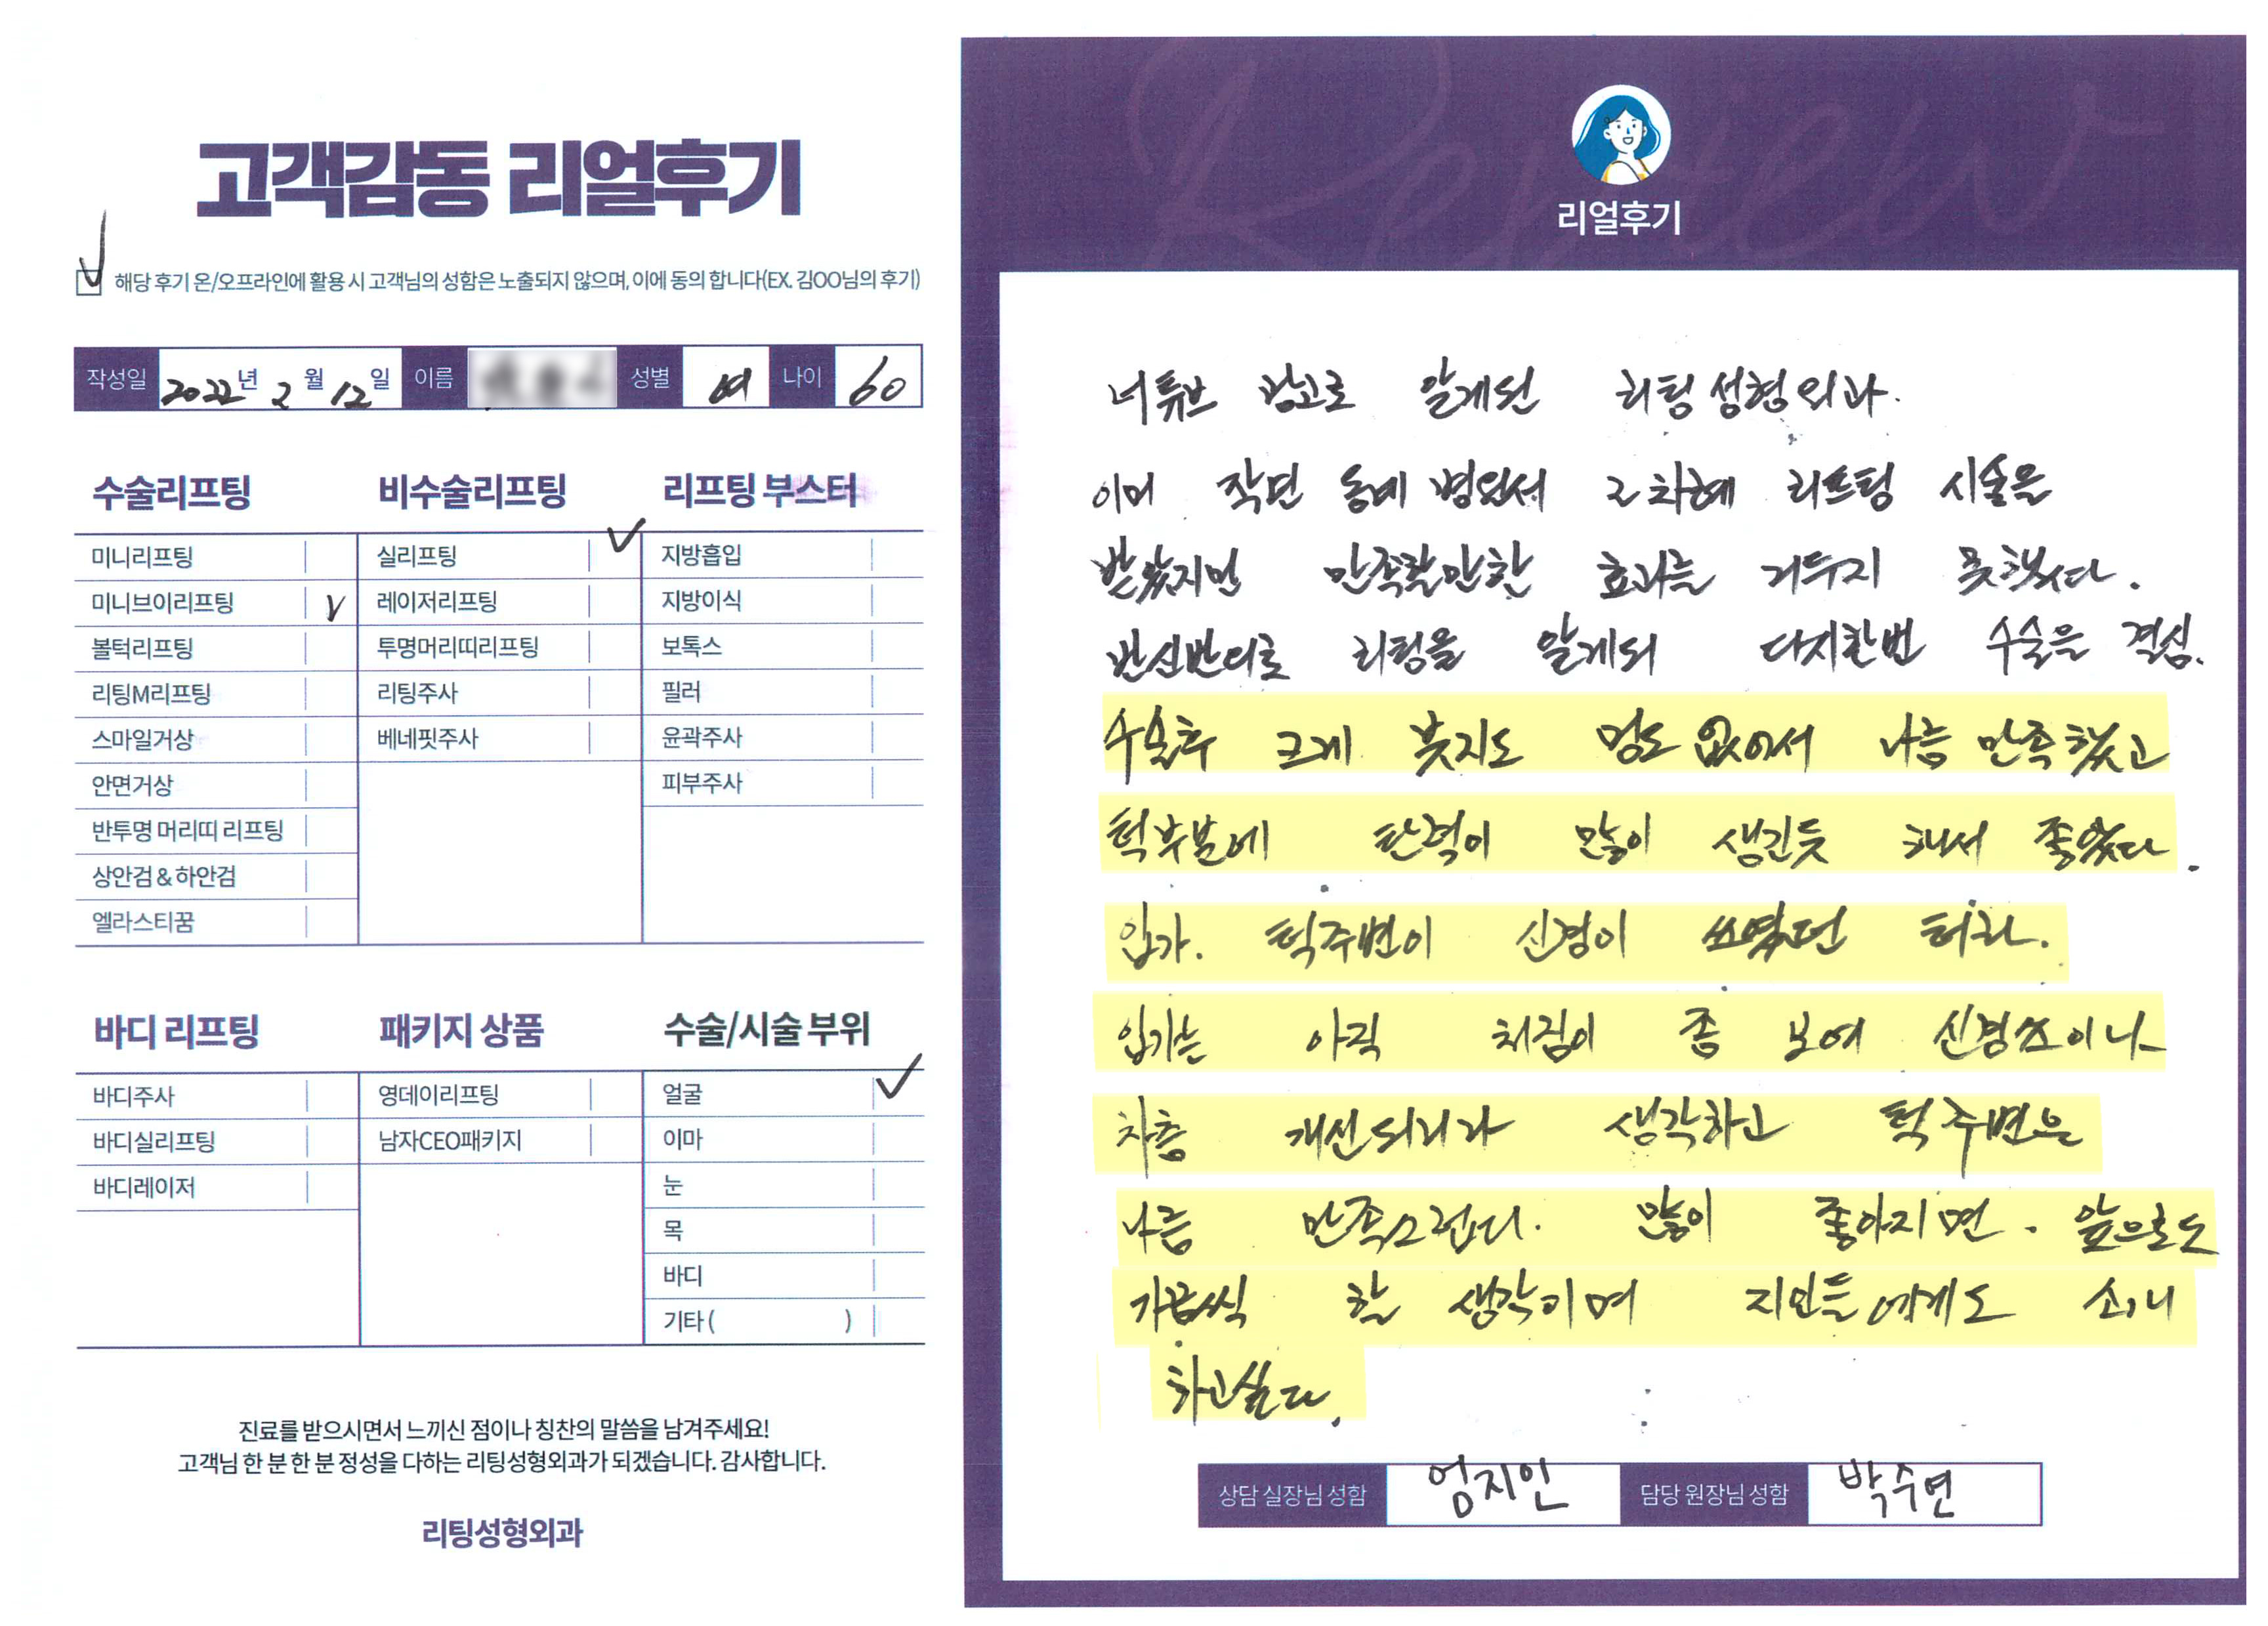 고객감동 리얼후기
해당 후기 온/오프라인에 활용 시 고객님의 성함은 노출되지 않으며, 이에 동의 합니다(EX. 김OO님의 후기)
작성일 2022년 2월 12일 이름 성별 여 나이 60
수술리프팅
미니리프팅
미니브이리프팅 V
볼턱리프팅
리팅M리프팅
스마일거상
안면거상
반투명 머리띠 리프팅
상안검 & 하안검
엘라스티꿈
비수술리프팅
실리프팅
레이저리프팅
투명머리띠리프팅
리팅주사
베네핏주사
리프팅 부스터
지방흡입
지방이식
보톡스
필러
윤곽주사
피부주사
바디 리프팅
바디주사
바디실리프팅
바디레이저
패키지 상품
영데이리프팅
남자CEO패키지
수술/시술 부위
얼굴
이마
눈
목
바디
기타 ( )
진료를 받으시면서 느끼신 점이나 칭찬의 말씀을 남겨주세요!
고객님 한 분 한 분 정성을 다하는 리팅성형외과가 되겠습니다. 감사합니다.
리팅성형외과
Review
리얼후기
너튜브 광고로 알게된 리팅성형외과.
이미 작년 동네 병원서 2차례 리프팅 시술을
받았지만 만족할만한 효과를 거두지 못했다.
반신반의로 리팅을 알게되 다시한번 수술을 결심.
수술후 크게 붓지도 멍도 없어서 나름 만족했고
턱부분에 탄력이 많이 생긴듯 해서 좋았다.
입가. 턱주변이 신경이 쓰였던 터라.
입가는 아직 처짐이 좀 보여 신경쓰이나
차츰 개선되리라 생각하고 턱주변은
나름 만족스럽다. 많이 좋아지면. 앞으로도
가끔씩 할 생각이며 지인들에게도 소개
하고싶다.
상담 실장님 성함 엄지인 담당 원장님 성함 박수연